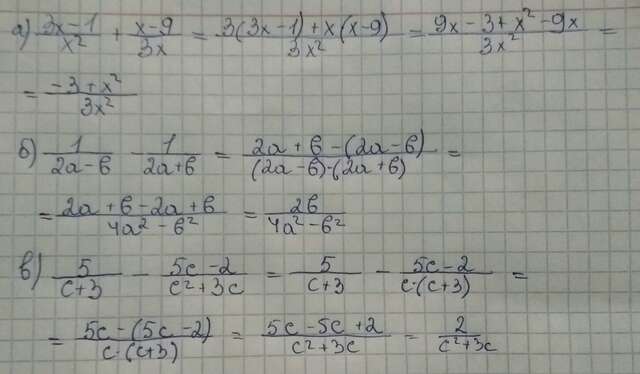 а) (3x-1)/x² + (x-9)/3x = (3(3x-1)+x(x-9))/3x² = (9x-3+x²-9x)/3x² =
= (-3+x²)/3x²
б) 1/(2a-b) - 1/(2a+b) = (2a+b-(2a-b))/((2a-b)·(2a+b)) =
= (2a+b-2a+b)/(4a²-b²) = 2b/(4a²-b²)
в) 5/(c+3) - (5c-2)/(c²+3c) = 5/(c+3) - (5c-2)/(c·(c+3)) =
= (5c-(5c-2))/(c·(c+3)) = (5c-5c+2)/(c²+3c) = 2/(c²+3c)